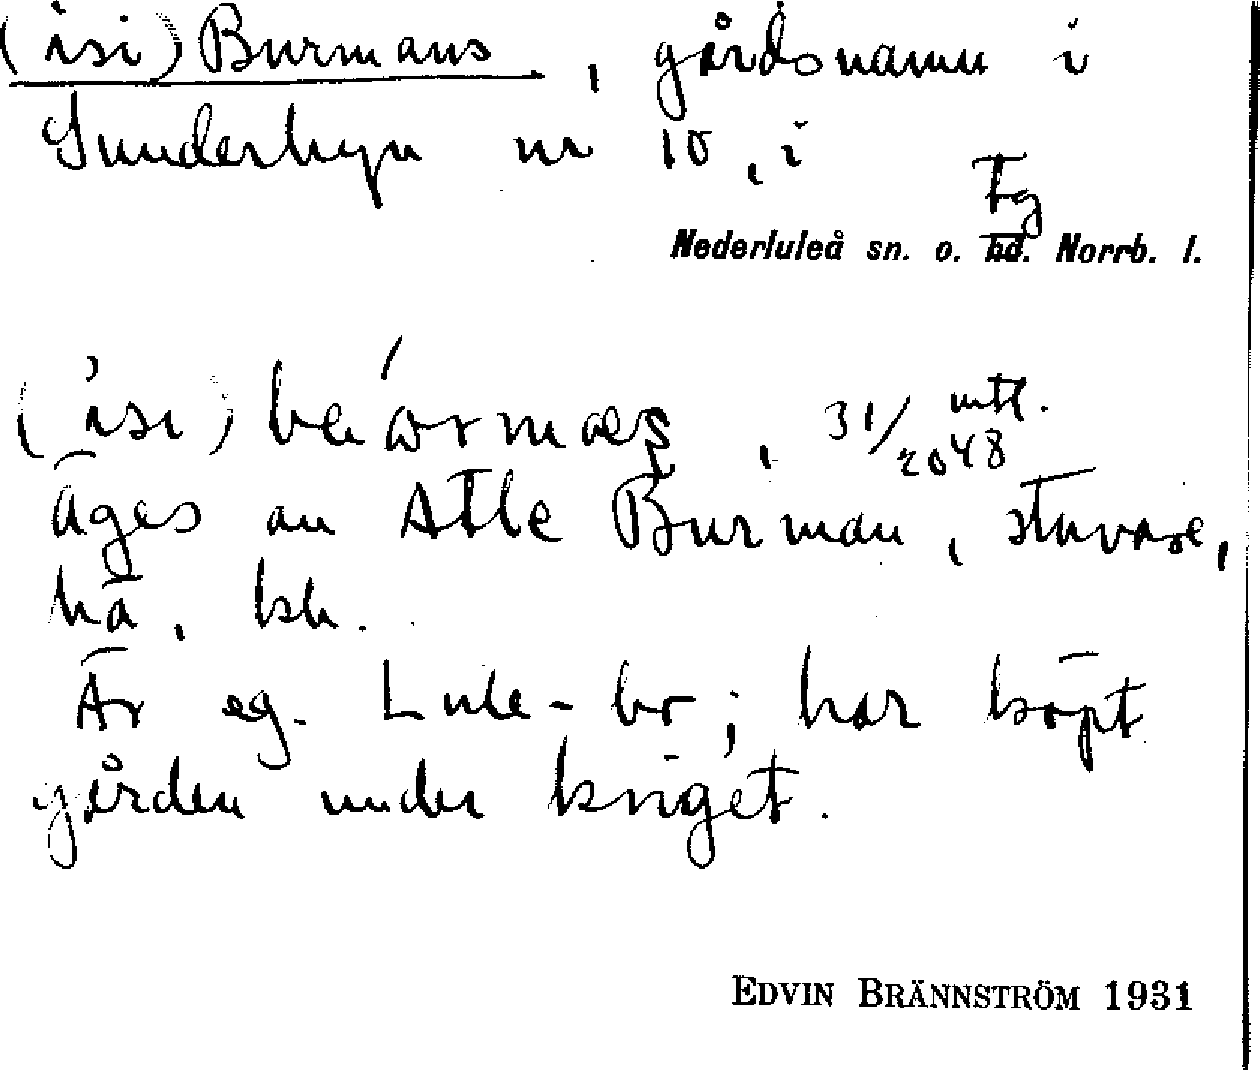 (isi) Burmans, gårdsnamn i
Sunderbyn nr 10, i
Tg
Nederluleå sn. o. hd. Norrb. l.
(ísi) , 31/2048 mtl.
Äges av Atle Burman, stuvare,
bā. kh.
Är eg. Lule-bo; har köpt
gården under kriget.
EDVIN BRÄNNSTRÖM 1931